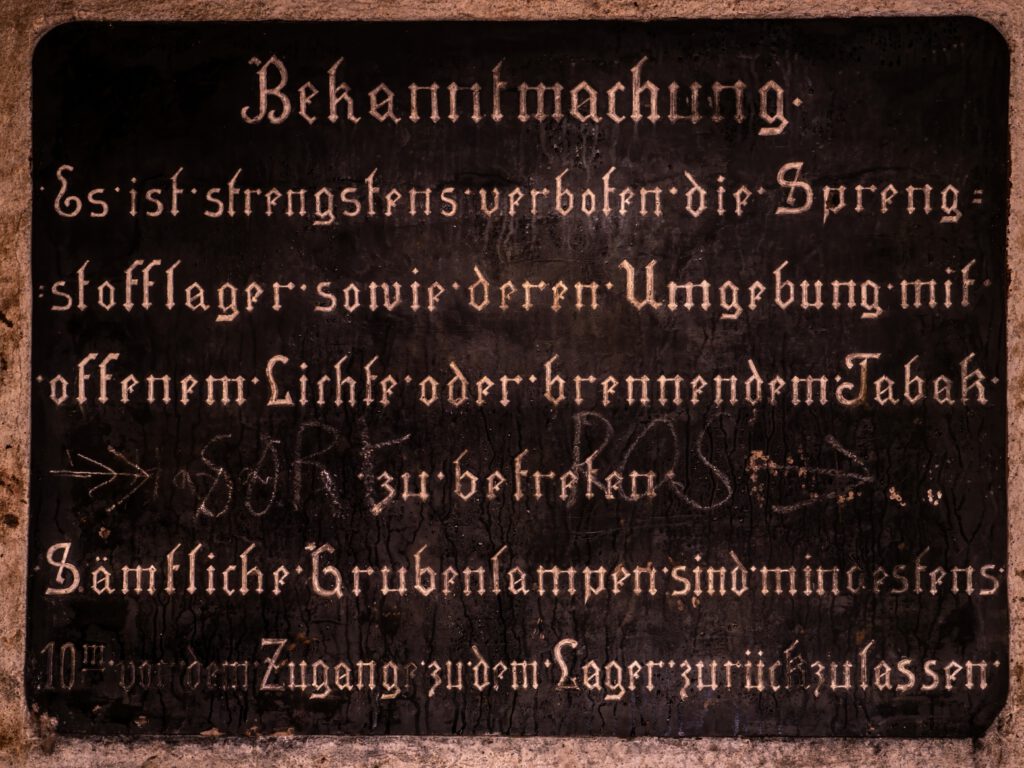 Bekanntmachung.
Es·ist·strengstens·verboten·die·Spreng=
=stofflager·sowie·deren·Umgebung·mit·
·offenem·Lichte·oder·brennendem·Tabak·
·zu·betreten·
Sämtliche·Grubenlampen·sind·mindestens·
10m·vor·dem·Zugange·zu·dem·Lager·zurückzulassen·